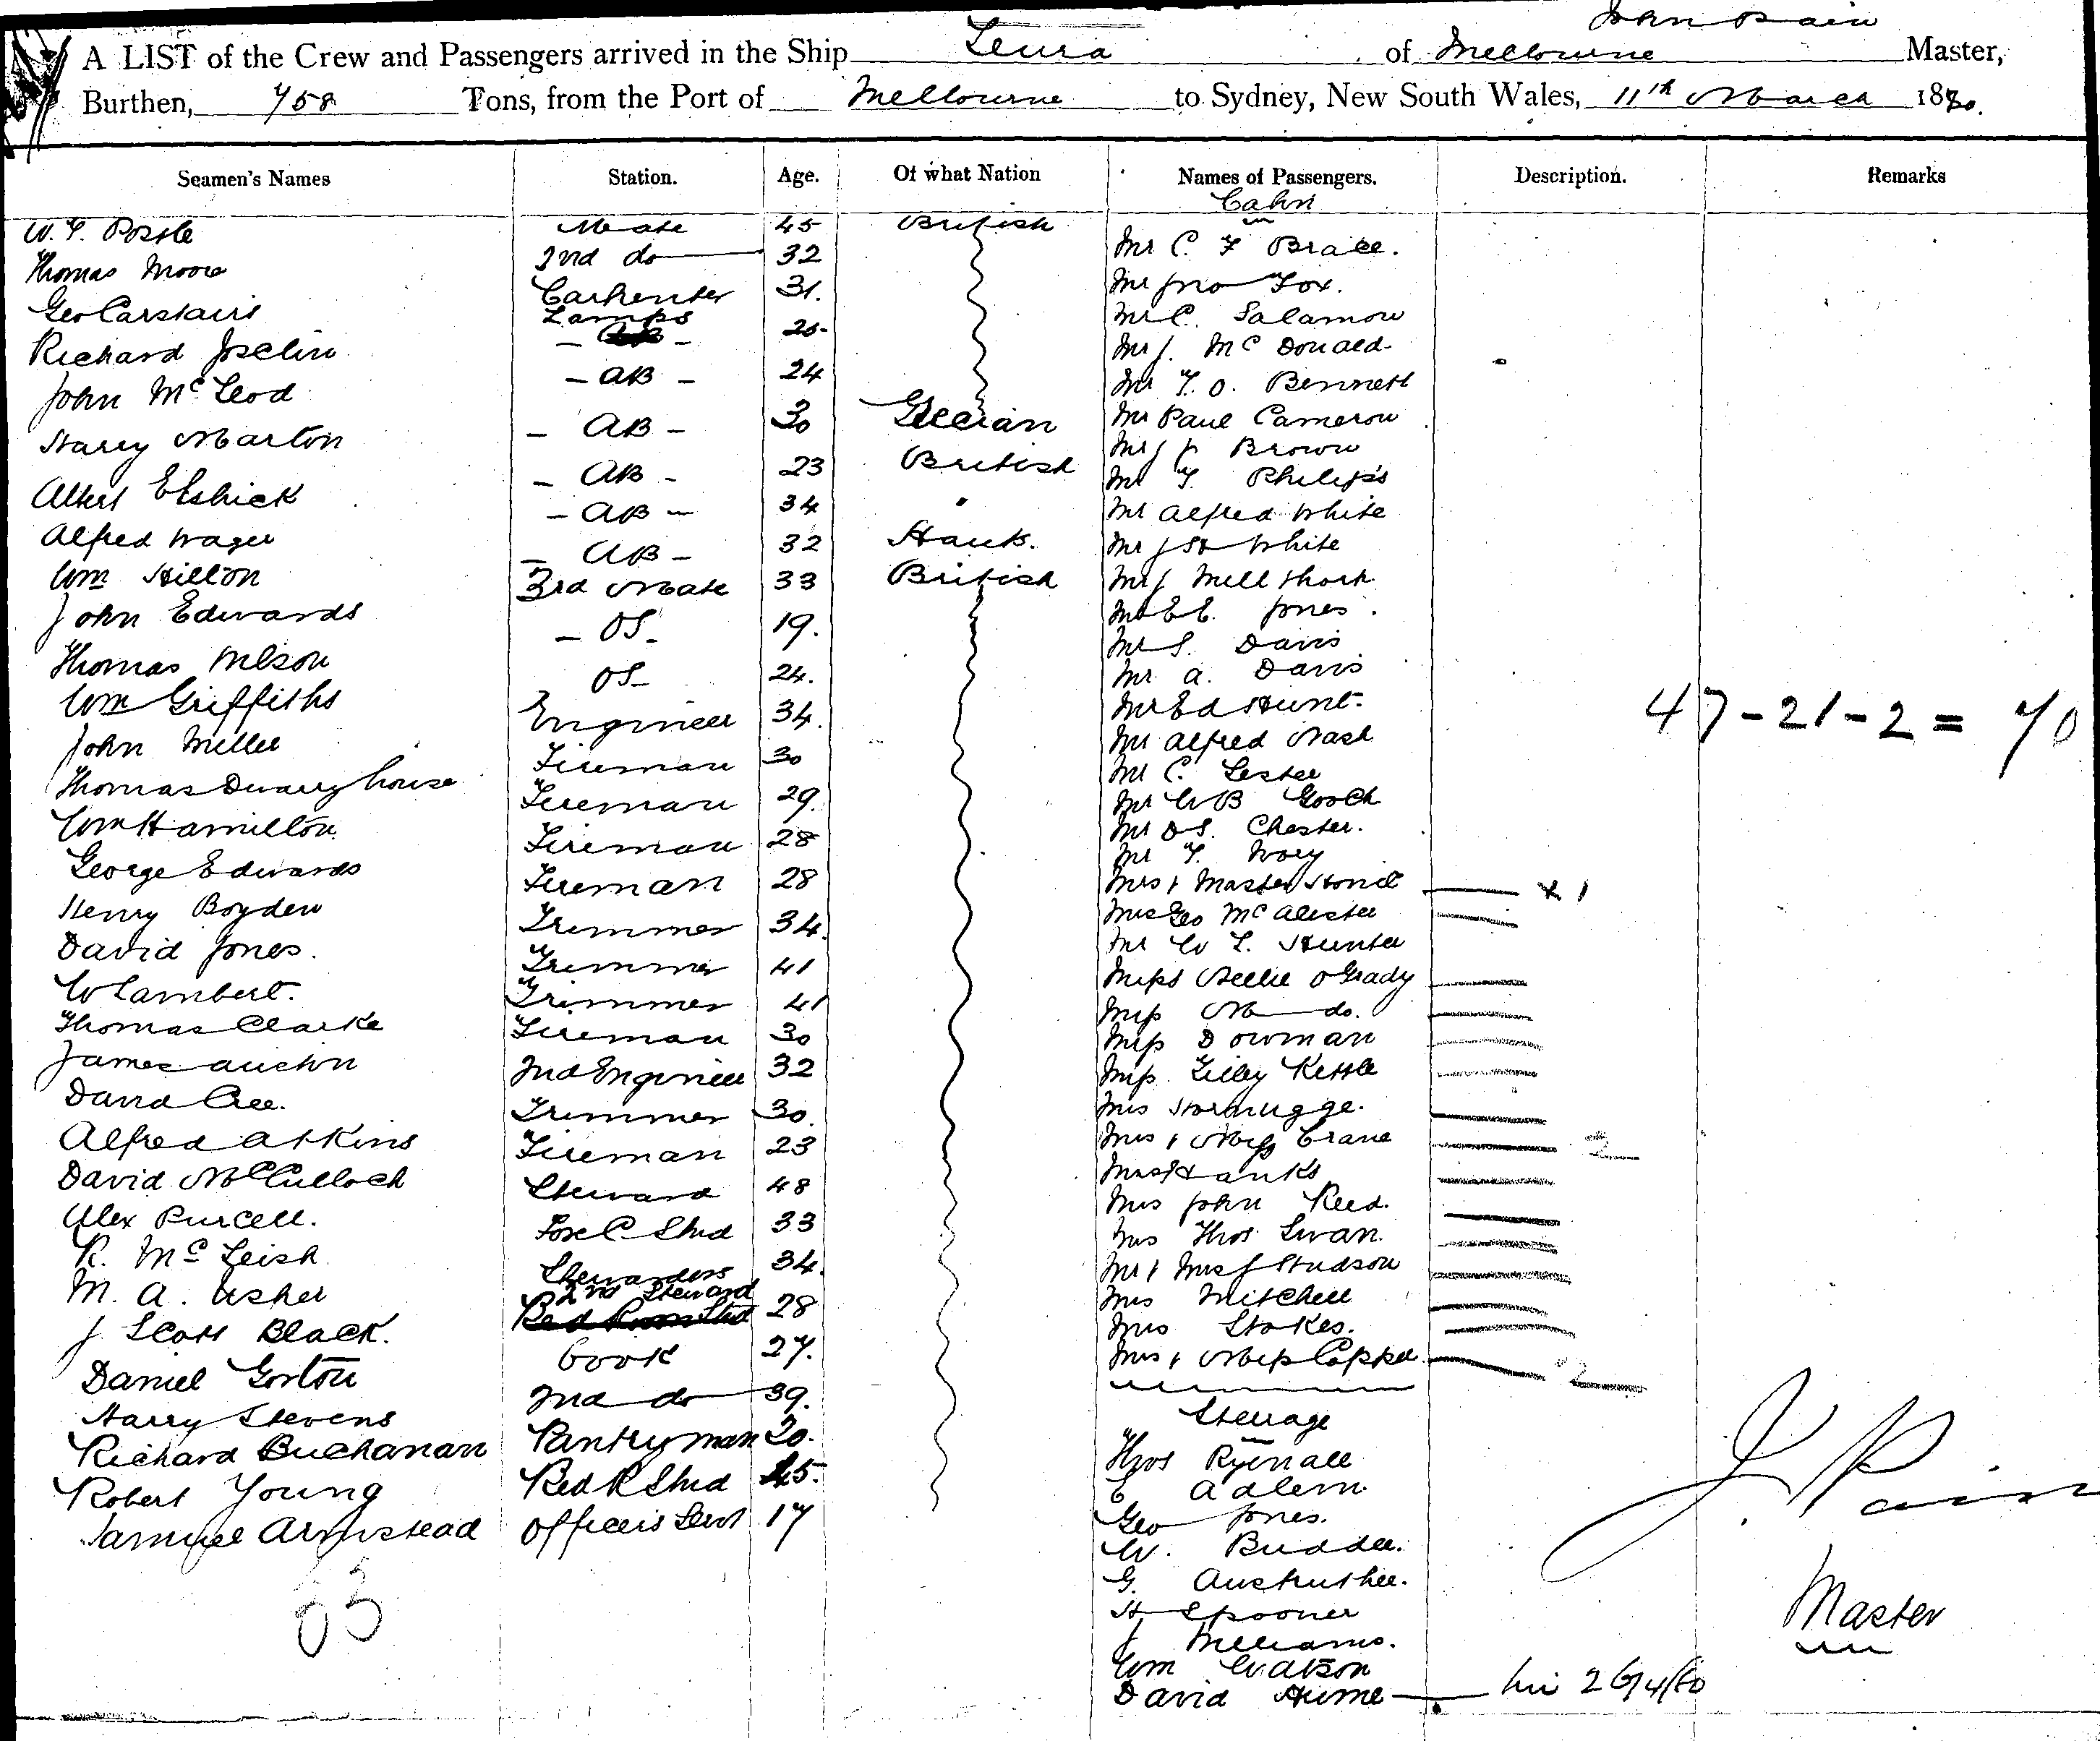 John Pain
A LIST of the Crew and Passengers arrived in the Ship Leura of Melbourne Master,
Burthen, 758 Tons, from the Port of Melbourne to Sydney, New South Wales, 11th March 1880.
Seamen's Names Station. Age. Of what Nation Names of Passengers. Description. Remarks
Cabin
W. F. Mate 45 British Mr C. F Brace.
Thomas Moore 2nd do 32 Mr Jno Fox.
Geo Carstairs Carpenter 31. Mr C. Salamon
Richard Joselin Lamps 25- Mr J. McDonald
John McLeod - AB - 24 Mr T. O. Bennett
Harry Marton - AB - 30 Grecian Mr Paul Cameron
Albert Elphick - AB - 23 British Mr J J Brown
Mr T. Philips
Alfred Wager - AB - 34 " Mr Alfred White
Wm Hilton - AB - 32 Mr J St White
John Edwards 3rd Mate 33 British Mr J
Thomas Wilson - OS - 19. Mr E E. Jones.
Mr S. Davis
Wm Griffiths OS - 24. Mr A. Davis
John Miller Engineer 34. Mr Ed Hunt.
Thomas Fireman 30 Mr Alfred Nash
Mr C. Lester
Wm Hamilton Fireman 29. Mr W B Gooch
Mr D S. Chester.
George Edwards Fireman 28 Mr T. Ivory
Henry Boyden Fireman 28 Mrs & Master x 1
Mrs Geo McAlister
David Jones. Trimmer 34. Mr W L. Hunter
W Lambert. Trimmer 41 Miss Nellie O'Grady
Thomas Clarke Trimmer 41 Miss M do.
James Fireman 30 Miss Dowman
David Cree. 2nd Engineer 32 Miss Lilley Kettle
Alfred Atkins Trimmer 30. Mrs
David McCulloch Fireman 23 Mrs & Miss Crane 2
Alex Purcell. Steward 48 Mrs Hanks
Mrs John Reed.
R. McLeish Fore C Stwd 33 Mrs Thos Swan.
M. A. Usher Stewardess 34. Mr & Mrs J Hudson
J Scott Black. 2nd Steward 28 Mrs Mitchell
Mrs Stokes.
Daniel Gorton Cook 27. Mrs & Miss 2
Harry Stevens 2nd do 39. Steerage
Richard Buchanan Pantryman 20. Thos
Robert Young Bed R Stwd 45. E Adlem
Samuel Armstead Officers Servt 17 Geo Jones.
W. Buddee.
G. Anstruther.
H Spooner
J Williams.
Wm Watson
David Hume
47 - 21 - 2 = 70
J. Pain
Master